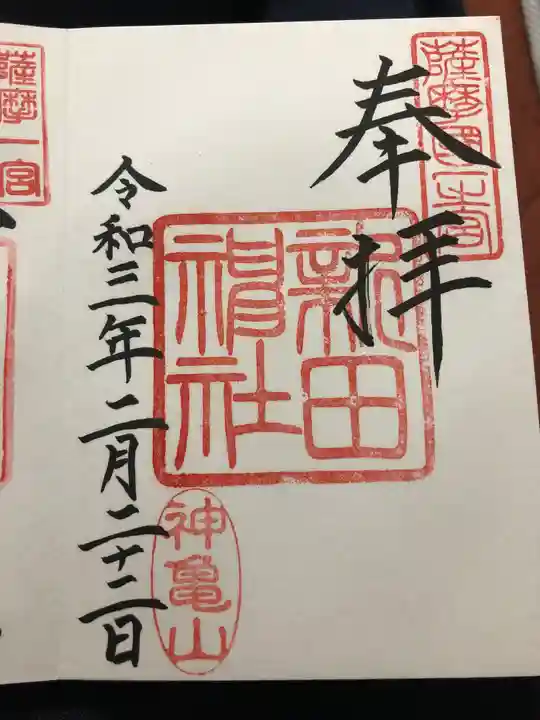 奉拝
薩摩國一宮
新田神社
令和三年二月二十二日
神亀山
薩摩一宮